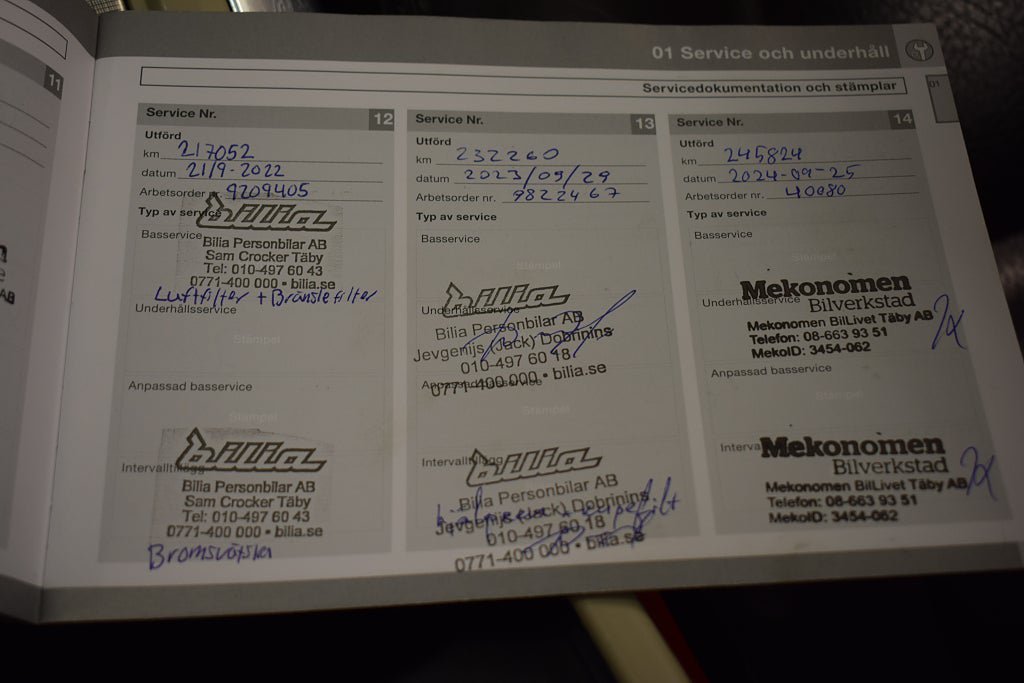 11
01 Service och underhåll
01
Servicedokumentation och stämplar
Service Nr. 12
Utförd
km 217052
datum 21/9-2022
Arbetsorder nr. 9209405
Typ av service
bilia
Basservice
Bilia Personbilar AB
Sam Crocker Täby
Tel: 010-497 60 43
0771-400 000 • bilia.se
Luftfilter + Bränslefilter
Underhållsservice
Stämpel
Anpassad basservice
Stämpel
bilia
Intervalltillägg
Bilia Personbilar AB
Sam Crocker Täby
Tel: 010-497 60 43
0771-400 000 • bilia.se
Bromsvätska
Service Nr. 13
Utförd
km 232260
datum 2023/09/29
Arbetsorder nr. 9822467
Typ av service
Basservice
Stämpel
bilia
Underhållsservice
Bilia Personbilar AB
Jevgenijs (Jack) Dobrinins
010-497 60 18
0771-400 000 • bilia.se
Anpassad basservice
Stämpel
bilia
Intervalltillägg
Bilia Personbilar AB
Jevgenijs (Jack) Dobrinins
010-497 60 18
0771-400 000 • bilia.se
Service Nr. 14
Utförd
km 245824
datum 2024-09-25
Arbetsorder nr. 40080
Typ av service
Basservice
Stämpel
Mekonomen
Underhållsservice
Bilverkstad
Mekonomen BilLivet Täby AB
Telefon: 08-663 93 51
MekoID: 3454-062
Anpassad basservice
Stämpel
Mekonomen
Bilverkstad
Mekonomen BilLivet Täby AB
Telefon: 08-663 93 51
MekoID: 3454-062